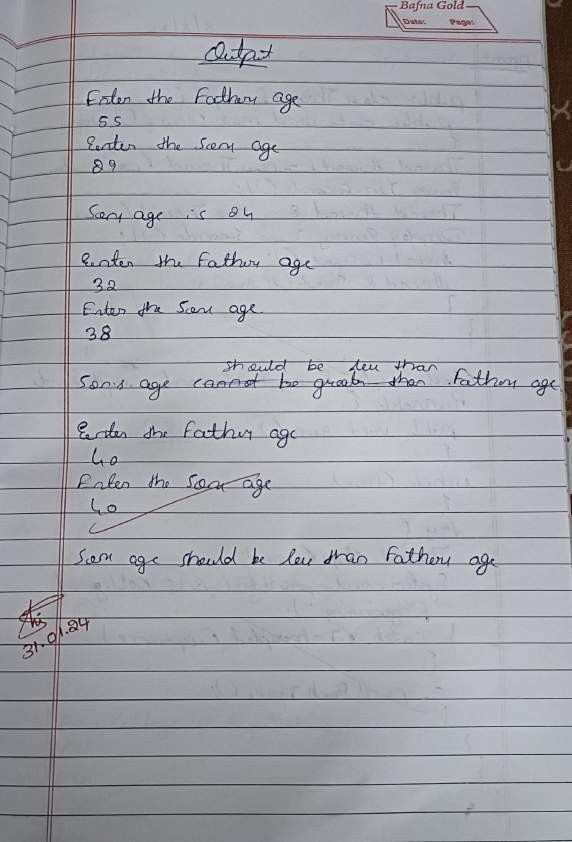 Bafna Gold
Date: Page:
Output
Enter the Fathers age
55
Enter the Sons age
29
Sons age is 24
Enter the Fathers age
32
Enter the Sons age
38
should be less than
Son's age cannot be greater than Fathers age
Enter the Fathers age
40
Enter the Sons age
40
Sons age should be less than Fathers age
31.01.24